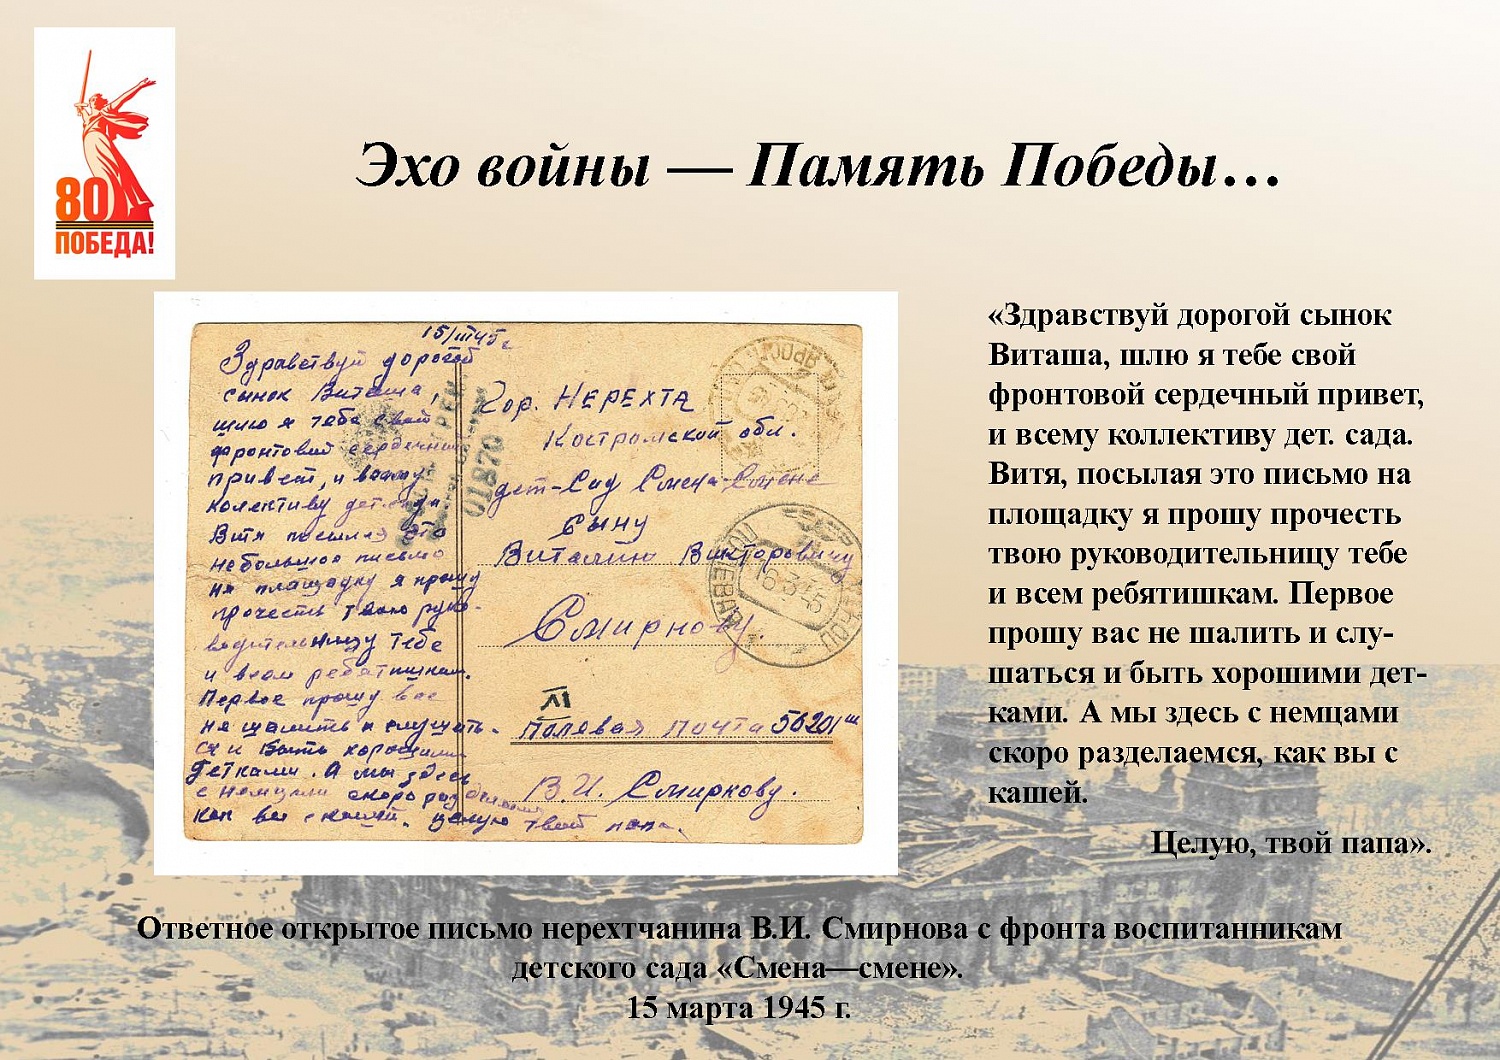 80
ПОБЕДА!
Эхо войны — Память Победы…
15/III 45 г.
Здравствуй дорогой
сынок Виташа,
шлю я тебе свой
фронтовой сердечный
привет, и всему
колективу дет. сада
Витя посылая это
небольшое письмо
на площадку я прошу
прочесть твою руко-
водительницу тебе
и всем ребятишкам.
Первое прошу вас
не шалить и слушать-
ся и быть хорошими
детками. А мы здесь
с немцами скоро разделаемся
как вы с кашей. целую твой папа.
01870
Гор. НЕРЕХТА
Костромской обл.
дет-Сад Смена-Смене
Сыну
Виталию Викторовичу
Смирнову.
16.3.45
Полевая почта 56201
В.И. Смиркову.
«Здравствуй дорогой сынок
Виташа, шлю я тебе свой
фронтовой сердечный привет,
и всему коллективу дет. сада.
Витя, посылая это письмо на
площадку я прошу прочесть
твою руководительницу тебе
и всем ребятишкам. Первое
прошу вас не шалить и слу-
шаться и быть хорошими дет-
ками. А мы здесь с немцами
скоро разделаемся, как вы с
кашей.
Целую, твой папа».
Ответное открытое письмо нерехтчанина В.И. Смирнова с фронта воспитанникам
детского сада «Смена—смене».
15 марта 1945 г.